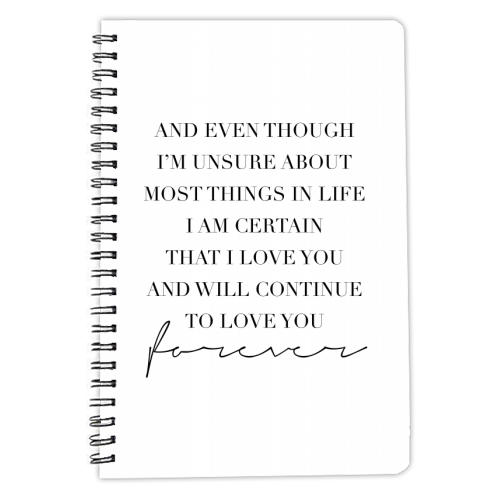 AND EVEN THOUGH
I'M UNSURE ABOUT
MOST THINGS IN LIFE
I AM CERTAIN
THAT I LOVE YOU
AND WILL CONTINUE
TO LOVE YOU
forever